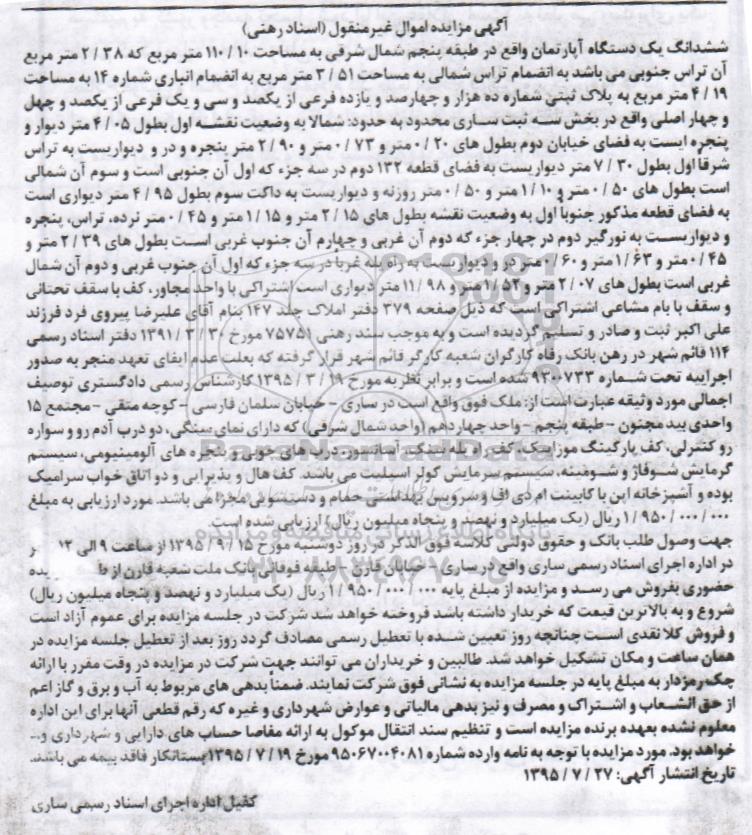 آگهی مزایده اموال غیرمنقول (اسناد رهنی)
ششدانگ یک دستگاه آپارتمان واقع در طبقه پنجم شمال شرقی به مساحت ۱۰ / ۱۱۰ متر مربع که ۳۸ / ۲ متر مربع
آن تراس جنوبی می باشد به انضمام تراس شمالی به مساحت ۵۱ / ۳ متر مربع به انضمام انباری شماره ۱۴ به مساحت
۱۹ / ۴ متر مربع به پلاک ثبتی شماره ده هزار و چهارصد و یازده فرعی از یکصد و سی و یک فرعی از یکصد و چهل
و چهار اصلی واقع در بخش سه ثبت ساری محدود به حدود: شمالا به وضعیت نقشه اول بطول ۰۵ / ۴ متر دیوار و
پنجره ایست به فضای خیابان دوم بطول های ۲۰ / ۰ متر و ۷۳ / ۰ متر و ۹۰ / ۲ متر پنجره و در و دیواریست به تراس
شرقاً اول بطول ۳۰ / ۷ متر دیواریست به فضای قطعه ۱۳۲ دوم در سه جزء که اول آن جنوبی است و سوم آن شمالی
است بطول های ۵۰ / ۰ متر و ۱۰ / ۱ متر و ۵۰ / ۰ متر روزنه و دیواریست به داکت سوم بطول ۹۵ / ۴ متر دیواری است
به فضای قطعه مذکور جنوباً اول به وضعیت نقشه بطول های ۱۵ / ۲ متر و ۱۵ / ۱ متر و ۴۵ / ۰ متر نرده، تراس، پنجره
و دیواریست به نورگیر دوم در چهار جزء که دوم آن غربی و چهارم آن جنوب غربی است بطول های ۳۹ / ۲ متر و
۴۵ / ۰ متر و ۶۳ / ۱ متر و ۶۰ / ۰ متر در و دیواریست به راه پله غربا در سه جزء که اول آن جنوب غربی و دوم آن شمال
غربی است بطول های ۰۷ / ۲ متر و ۵۲ / ۱ متر و ۹۸ / ۱۱ متر دیواری است اشتراکی با واحد مجاور، کف با سقف تحتانی
و سقف با بام مشاعی اشتراکی است که ذیل صفحه ۳۷۹ دفتر املاک جلد ۱۴۷ بنام آقای علیرضا پیروی فرد فرزند
علی اکبر ثبت و صادر و تسلیم گردیده است و به موجب سند رهنی ۷۵۷۵۱ مورخ ۳۰ / ۳ / ۱۳۹۱ دفتر اسناد رسمی
۱۱۴ قائم شهر در رهن بانک رفاه کارگران شعبه کارگر قائم شهر قرار گرفته که بعلت عدم ایفای تعهد منجر به صدور
اجراییه تحت شماره ۹۳۰۰۷۳۳ شده است و برابر نظریه مورخ ۱۹ / ۳ / ۱۳۹۵ کارشناس رسمی دادگستری توصیف
اجمالی مورد وثیقه عبارت است از: ملک فوق واقع است در ساری - خیابان سلمان فارسی - کوچه متقی - مجتمع ۱۵
واحدی بید مجنون - طبقه پنجم - واحد چهاردهم (واحد شمال شرقی) که دارای نمای سنگی، دو درب آدم رو و سواره
رو کنترلی، کف پارگینگ موزاییک، کف راه پله سنگ، آسانسور، درب های چوبی و پنجره های آلومینیومی، سیستم
گرمایش شوفاژ و شومینه، سیستم سرمایش کولر اسپلیت می باشد. کف هال و پذیرایی و دو اتاق خواب سرامیک
بوده و آشپزخانه اپن با کابینت ام دی اف و سرویس بهداشتی حمام و دستشوئی مجزا می باشد. مورد ارزیابی به مبلغ
۰۰۰ / ۰۰۰ / ۹۵۰ / ۱ ریال (یک میلیارد و نهصد و پنجاه میلیون ریال) ارزیابی شده است.
جهت وصول طلب بانک و حقوق دولتی کلاسه فوق الذکر در روز دوشنبه مورخ ۱۵ / ۹ / ۱۳۹۵ از ساعت ۹ الی ۱۲
در اداره اجرای اسناد رسمی ساری واقع در ساری - خیابان قارن - طبقه فوقانی بانک ملت شعبه قارن از
حضوری بفروش می رسد و مزایده از مبلغ پایه ۰۰۰ / ۰۰۰ / ۹۵۰ / ۱ ریال (یک میلیارد و نهصد و پنجاه میلیون ریال)
شروع و به بالاترین قیمت که خریدار داشته باشد فروخته خواهد شد شرکت در جلسه مزایده برای عموم آزاد است
و فروش کلا نقدی است چنانچه روز تعیین شده با تعطیل رسمی مصادف گردد روز بعد از تعطیل جلسه مزایده در
همان ساعت و مکان تشکیل خواهد شد. طالبین و خریداران می توانند جهت شرکت در مزایده در وقت مقرر با ارائه
چک رمزدار به مبلغ پایه در جلسه مزایده به نشانی فوق شرکت نمایند. ضمناً بدهی های مربوط به آب و برق و گاز اعم
از حق انشعاب و اشتراک و مصرف و نیز بدهی مالیاتی و عوارض شهرداری و غیره که رقم قطعی آنها برای این اداره
معلوم نشده بعهده برنده مزایده است و تنظیم سند انتقال موکول به ارائه مفاصا حساب های دارایی و شهرداری و...
خواهد بود. مورد مزایده با توجه به نامه وارده شماره ۹۵۰۶۷۰۰۴۰۸۱ مورخ ۱۹ / ۷ / ۱۳۹۵ بستانکار فاقد بیمه می باشند.
تاریخ انتشار آگهی: ۲۷ / ۷ / ۱۳۹۵
کفیل اداره اجرای اسناد رسمی ساری